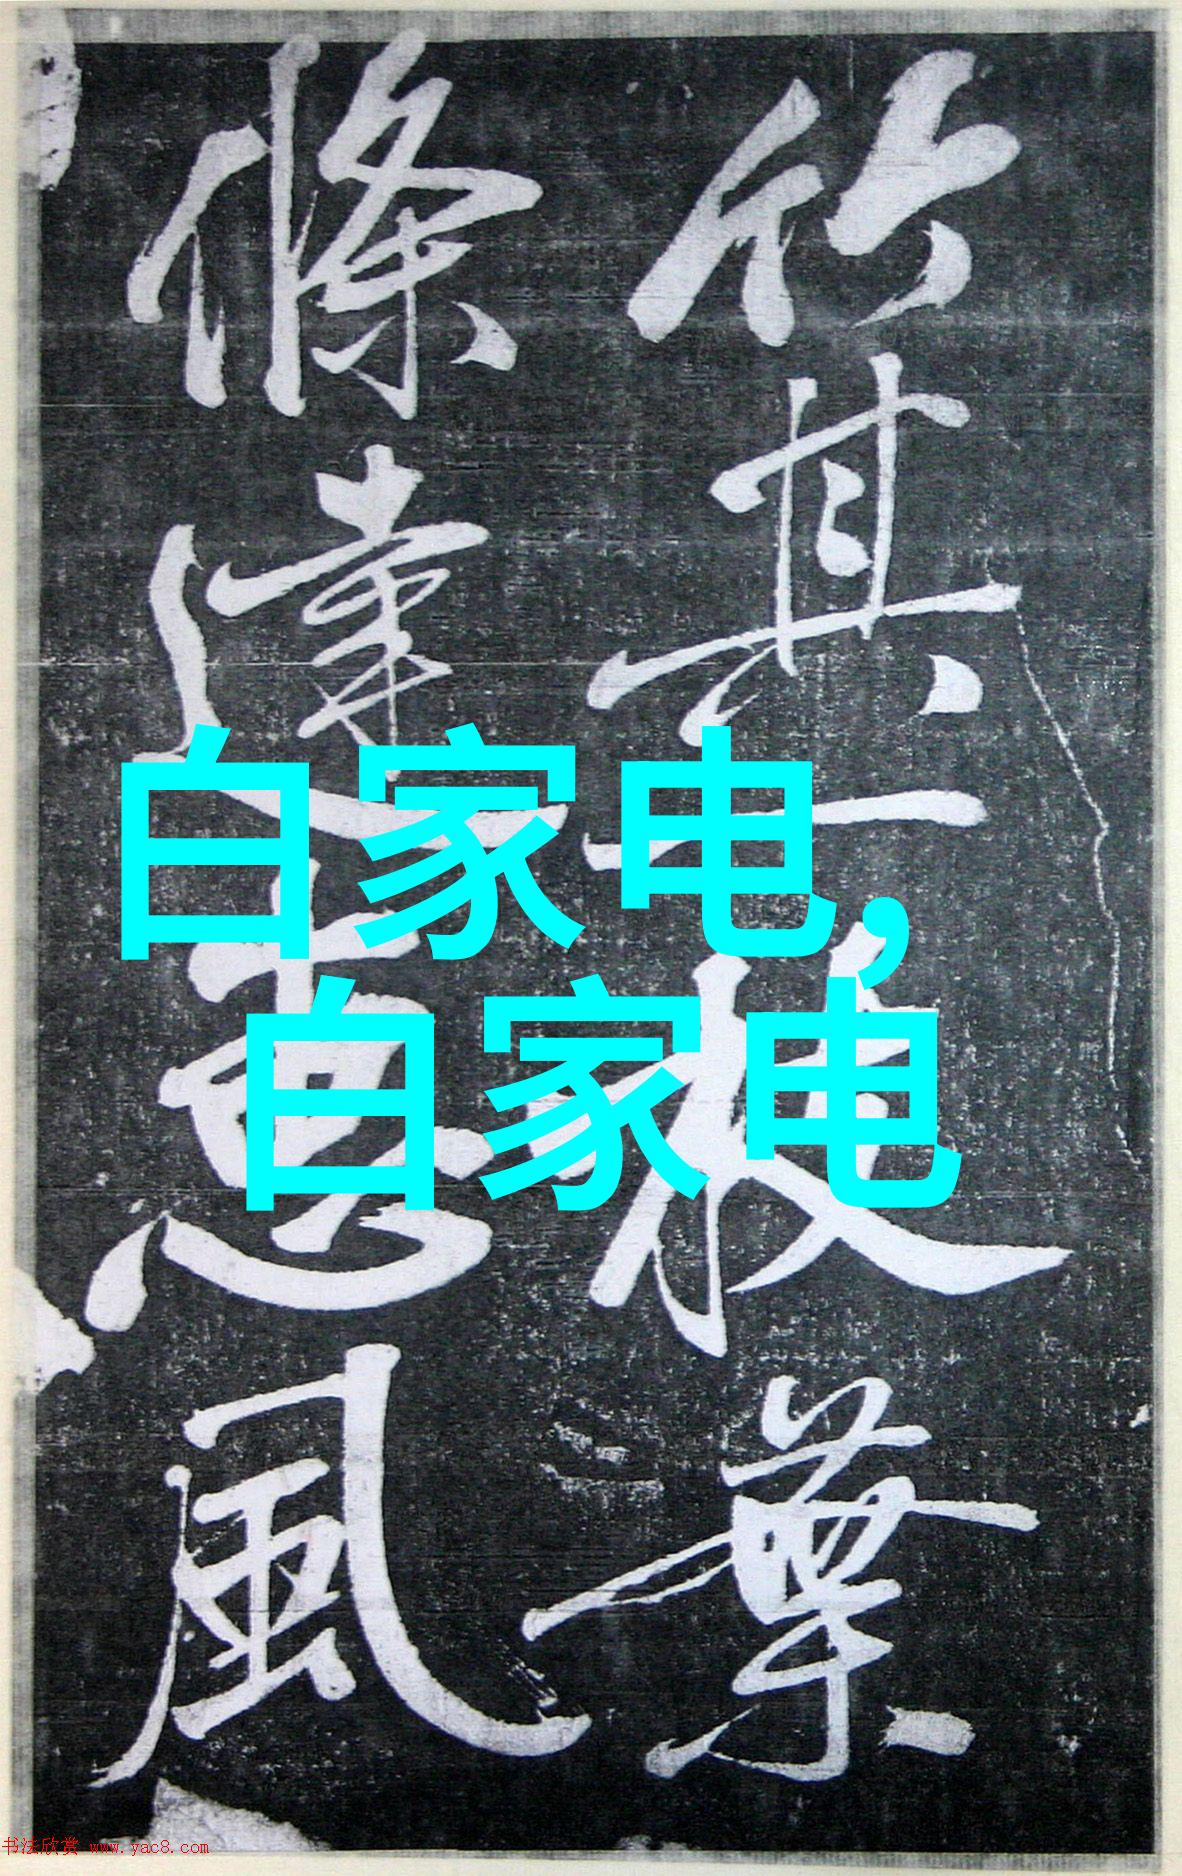 竹其一枝葉
條達惠風
白家电,
白家电
书法欣赏 www.yac8.com